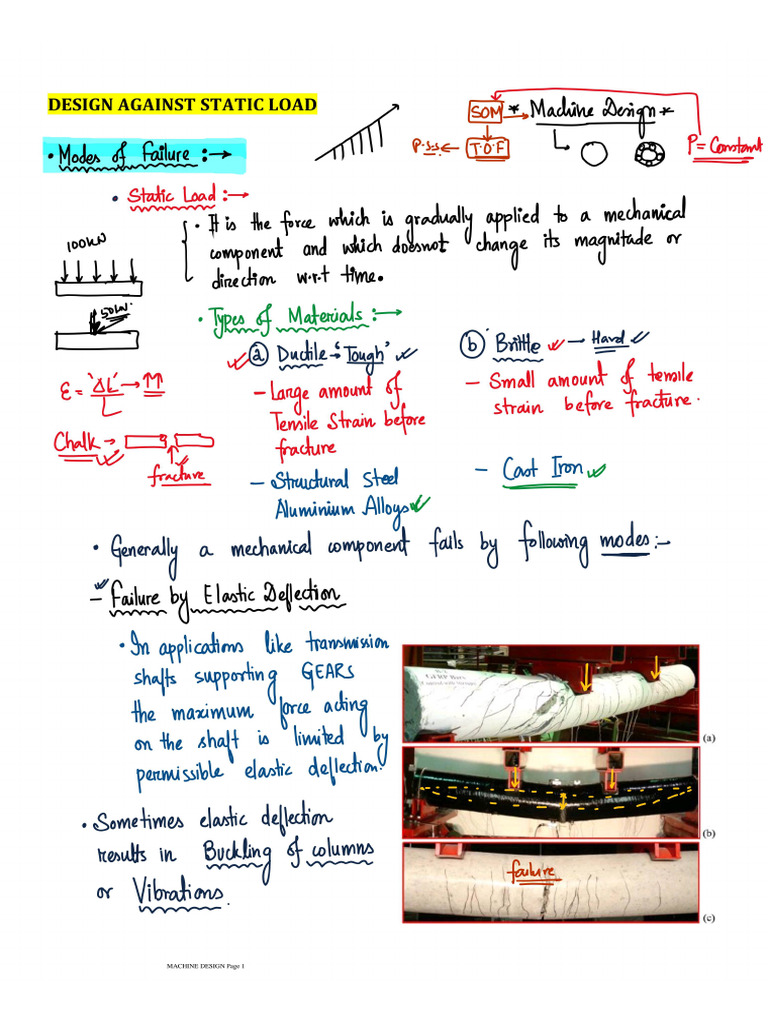 DESIGN AGAINST STATIC LOAD
SOM → * Machine Design *
P.S.S ← T.O.F
P = Constant
• Modes of Failure :→
• Static Load :→
• It is the force which is gradually applied to a mechanical
component and which doesnot change its magnitude or
direction w.r.t time.
100kN
50kN.
• Types of Materials :→
ⓐ Ductile - 'Tough'
– Large amount of
Tensile Strain before
fracture
– Structural Steel
Aluminium Alloys
ⓑ Brittle → Hard
– Small amount of tensile
strain before fracture.
– Cast Iron
ε = 'ΔL' → ↑↑
L
Chalk →
fracture
• Generally a mechanical component fails by following modes :–
– Failure by Elastic Deflection
• In applications like transmission
shafts supporting GEARS
the maximum force acting
on the shaft is limited by
permissible elastic deflection.
• Sometimes elastic deflection
results in Buckling of columns
or Vibrations.
GFRP Bars
(a)
(b)
failure
(c)
MACHINE DESIGN Page 1